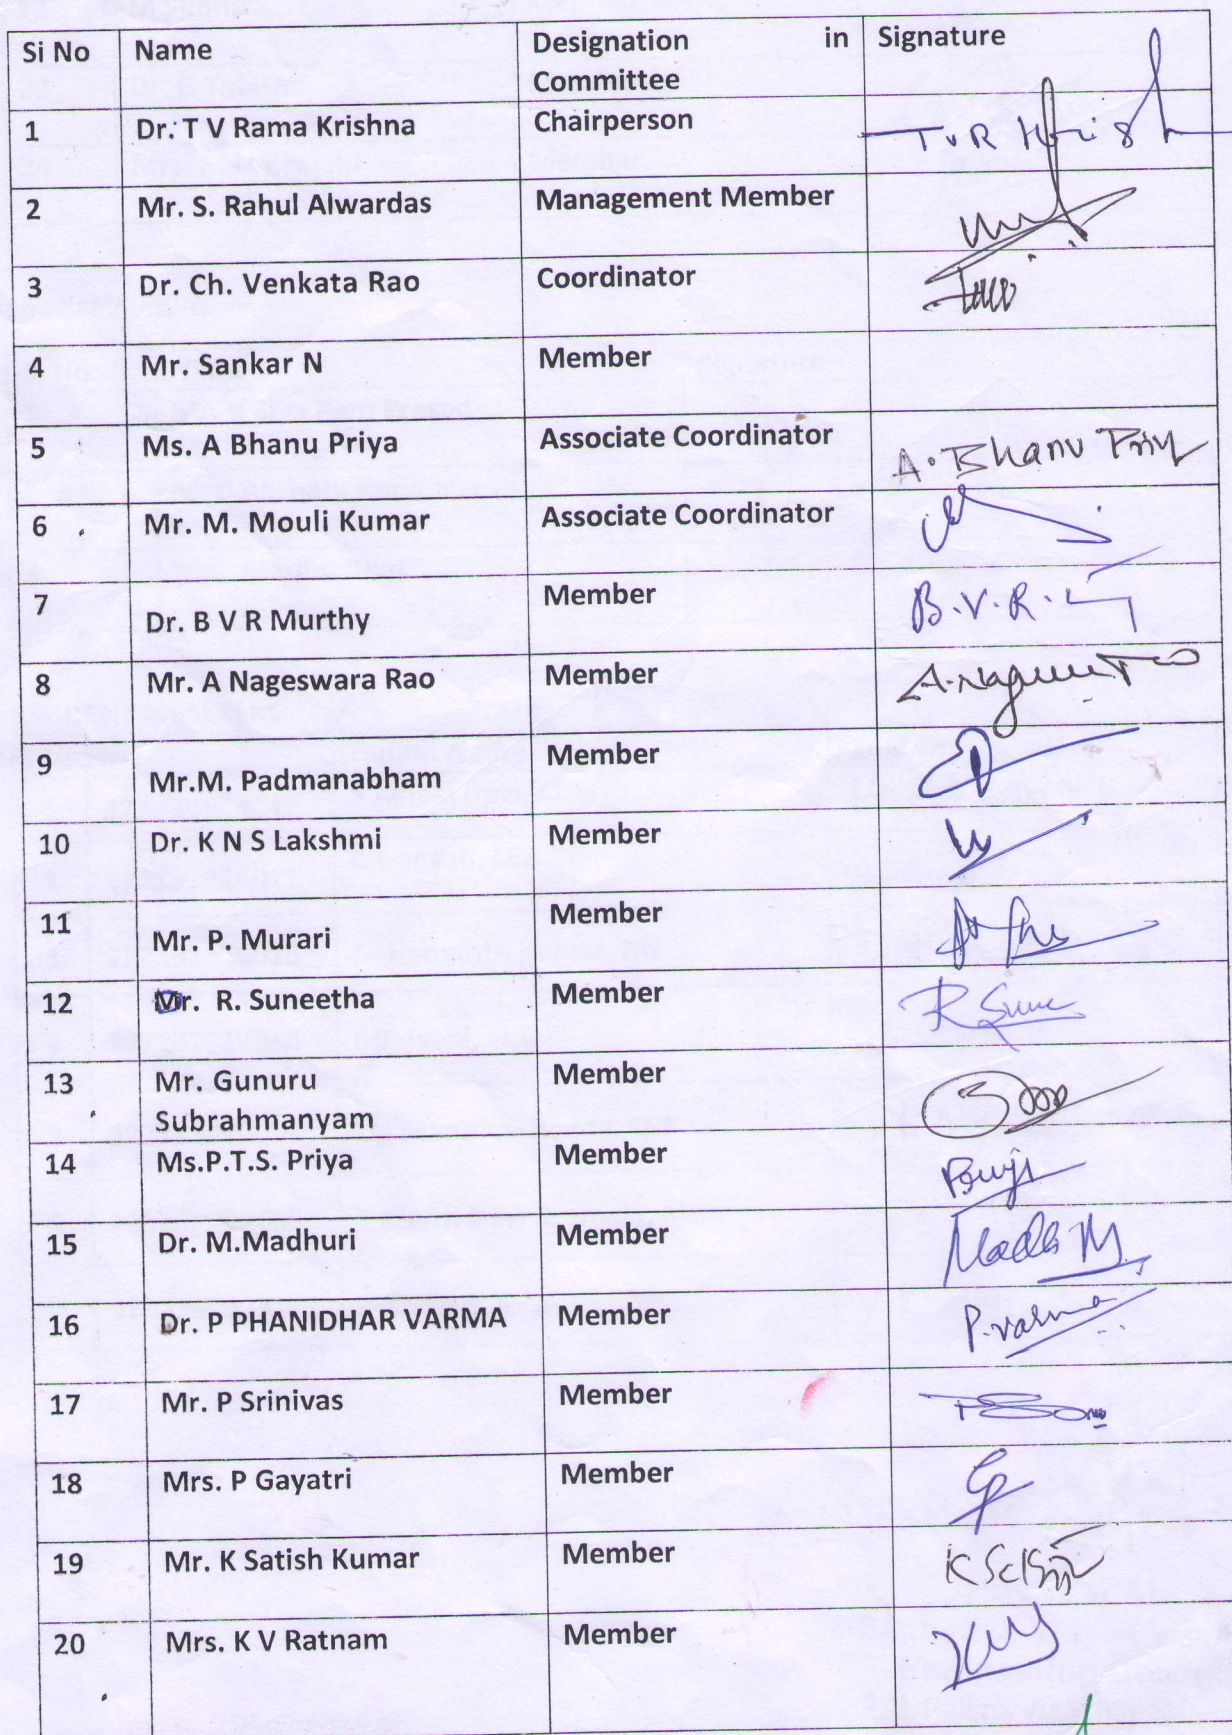 Si No Name Designation in Signature
Committee
1 Dr. T V Rama Krishna Chairperson T V R Krish
2 Mr. S. Rahul Alwardas Management Member
3 Dr. Ch. Venkata Rao Coordinator
4 Mr. Sankar N Member
5 Ms. A Bhanu Priya Associate Coordinator A. Bhanu Priy
6 Mr. M. Mouli Kumar Associate Coordinator
7 Dr. B V R Murthy Member B.V.R.
8 Mr. A Nageswara Rao Member
9 Mr.M. Padmanabham Member
10 Dr. K N S Lakshmi Member
11 Mr. P. Murari Member
12 Mr. R. Suneetha Member R Sune
13 Mr. Gunuru Member
Subrahmanyam
14 Ms.P.T.S. Priya Member
15 Dr. M.Madhuri Member
16 Dr. P PHANIDHAR VARMA Member P. Varma
17 Mr. P Srinivas Member
18 Mrs. P Gayatri Member
19 Mr. K Satish Kumar Member
20 Mrs. K V Ratnam Member